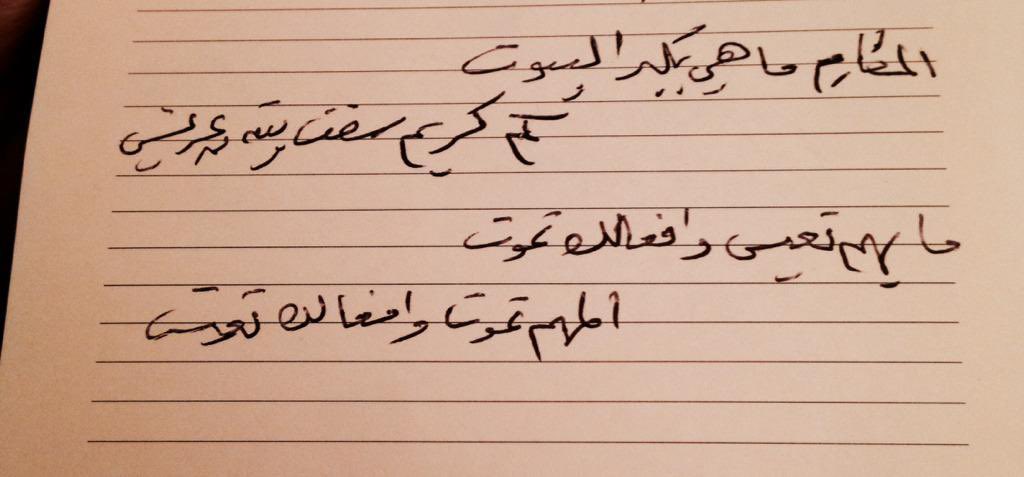 المكارم ما هي بكبر البيوت
كم كريم سقف بيته عريش
ما يهم تعيش وافعالك تموت
المهم تموت وافعالك تعيش